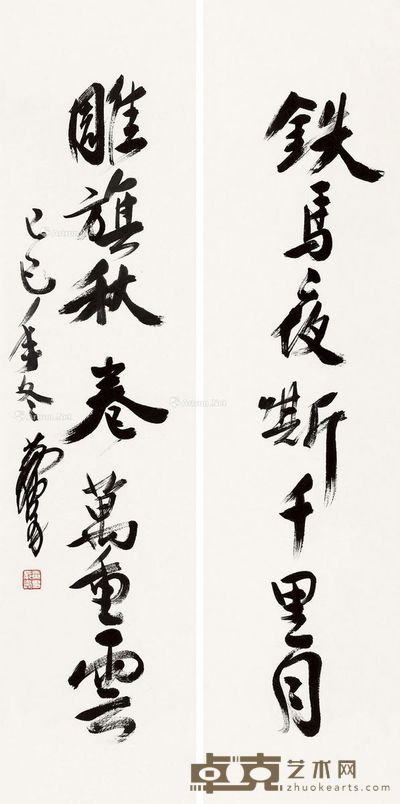 鉄馬夜嘶千里月
雕旗秋卷萬重雲
己巳年冬
卓克艺术网
zhuokearts.com